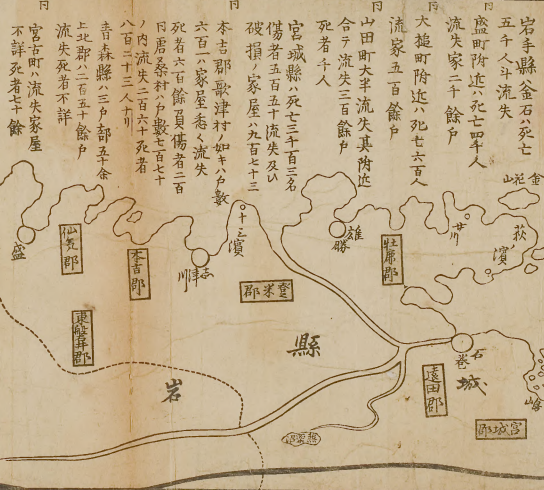 岩手縣釜石ハ死亡
五千人斗流失
盛町附近ハ死亡四千人
流失家二千餘戶
大槌町附近ハ死亡六百人
流家五百餘戶
山田町大半流失其附近
合テ流失三百餘戶
死者千人
宮城縣ハ死亡三千百三名
傷者五百五十流失及ヒ
破損ノ家屋ハ九百七十三
本吉郡歌津村ノ如キハ戶數
六百ノ家屋悉ク流失
死者六百餘負傷者二百
同唐桑村ハ戶數七百七十
ノ内流失二百六十死者
八百二十三人ナリ
青森縣ハ三戶郡五十余
上北郡ハ二百五十餘戶
流失死者不詳
宮古町ハ流失家屋
不詳死者七十餘
金花山
荻ノ濱
牡鹿郡
雄勝
十三濱
志津川
本吉郡
仙気郡
盛
東磐井郡
登米郡
縣
城
石巻
遠田郡
宮城郡
岩